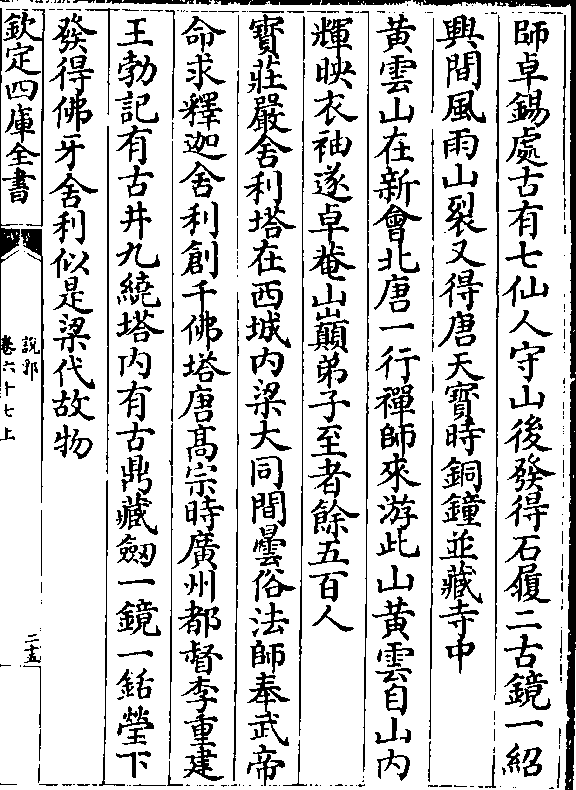 師卓錫處古有七仙人守山後發得石履二古鏡一紹
興間風雨山裂又得唐天寳時銅鐘並藏寺中
黄雲山在新會北唐一行禪師來游此山黄雲自山内
輝映衣袖遂卓菴山巔弟子至者餘五百人
寳莊嚴舍利塔在西城内梁大同間曇俗法師奉武帝
命求釋迦舍利創千佛塔唐髙宗時廣州都督李重建
王勃記有古井九繞塔内有古鼎藏劔一鏡一銛瑩下
發得佛牙舍利似是梁代故物
欽定四庫全書
說郛
卷六十七上
二十五